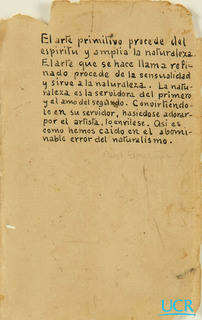 El arte primitivo procede del
espíritu y amplía la naturaleza.
El arte que se hace llama refi-
nado procede de la sensualidad
y sirve a la naturaleza. La natu-
raleza es la servidora del primero
y el amo del segundo. Convirtiéndo-
lo en su servidor, hasiedose adorar
por el artista, lo envilese. Así es
como hemos caido en el abomi-
nable error del naturalismo.
UCR